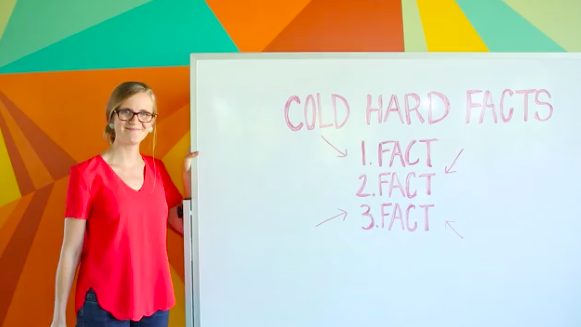 COLD HARD FACTS
1. FACT
2. FACT
3. FACT